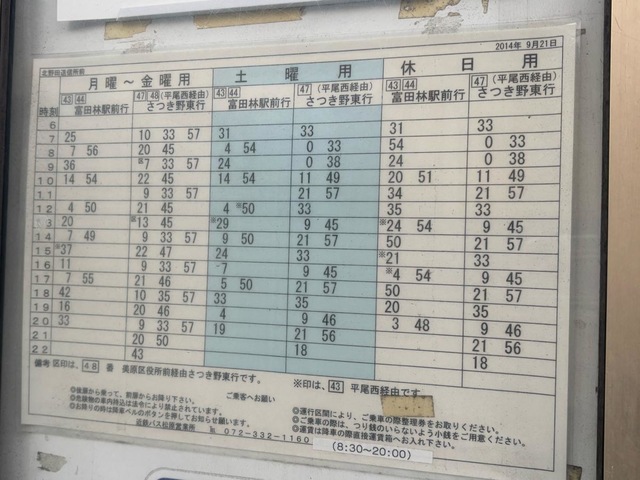 北野田街道信所前
2014年 9月21日
月曜～金曜用 土曜用 休日用
時刻 43 44 富田林駅前行 47 48 (平尾西経由) さつき野東行 43 44 富田林駅前行 47 (平尾西経由) さつき野東行 43 44 富田林駅前行 47 (平尾西経由) さつき野東行
6
7 25 10 33 57 31 33 31 33
8 7 56 20 45 4 54 0 33 54 0 33
9 36 ※7 33 57 24 0 38 24 0 38
10 14 54 22 45 14 54 11 49 20 51 11 49
11 9 33 57 21 57 34 21 57
12 4 50 21 45 4 ※50 33 35 33
13 20 ※13 45 ※29 9 45 ※24 54 9 45
14 7 49 9 33 57 9 50 21 57 50 21 57
15 ※37 22 47 24 33 ※21 33
16 11 9 33 57 7 9 45 ※4 54 9 45
17 7 55 21 46 5 50 21 57 50 21 57
18 42 10 35 57 33 35 20 35
19 16 20 46 4 9 46 3 48 9 46
20 33 9 33 57 19 21 56 21 56
21 20 50 18 18
22 43
備考 区印は、48 番 美原区役所前経由さつき野東行です。 ※印は、43 平尾西経由です。
ご乗客へお願い
◎後扉から乗って、前扉からお降り下さい。
◎危険物の車内持込は法令により禁止されています。
◎お降りの時は降車ベルのボタンを押してお知らせ願います。
◎運行区間により、ご乗車の際整理券をお取りください。
◎ご乗車の際は、つり銭のいらないよう小銭をご用意ください。
◎運賃は降車の際直接運賃箱へお入れ下さい。
近鉄バス松原営業所 072-332-1160
(8:30~20:00)